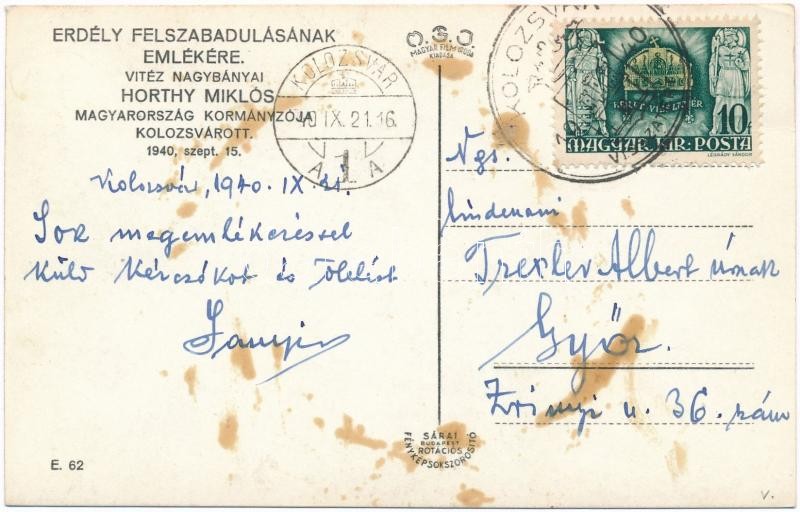 ERDÉLY FELSZABADULÁSÁNAK
EMLÉKÉRE.
VITÉZ NAGYBÁNYAI
HORTHY MIKLÓS
MAGYARORSZÁG KORMÁNYZÓJA
KOLOZSVÁROTT.
1940, szept. 15.
KOLOZSVÁR
40 IX. 21. 16
A 1 A
O.S.O.
MAGYAR FILM IRODA
KIADÁSA
KOLOZSVÁR
VISSZA
10
MAGYAR KIR. POSTA
LÉGRÁDY SÁNDOR
Kolozsvár, 1940. IX. 21.
Sok megemlékezéssel
küld kézcsókot és ölelést
Sanyi
Ngs.
Lindenani
Trexler Albert úrnak
Győr.
Zrinyi u. 36. szám
SÁRAI
BUDAPEST
ROTÁCIÓS
FÉNYKÉPSOKSZOROSITÓ
E. 62
v.